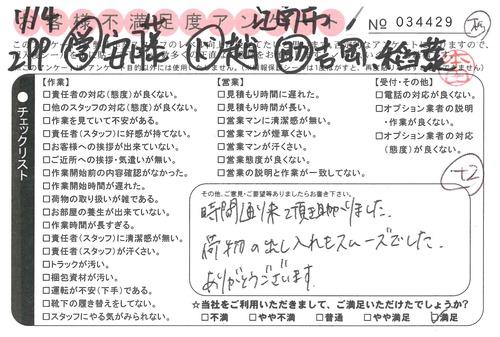 お客様不満足度アンケート
№ 034429
チェックリスト
【作業】
□責任者の対応(態度)が良くない。
□他のスタッフの対応(態度)が良くない。
□作業を見ていて不安がある。
□責任者(スタッフ)に好感が持てない。
□お客様への挨拶が出来ていない。
□ご近所への挨拶・気遣いが無い。
□作業開始前の内容確認がなかった。
□作業開始時間が遅れた。
□荷物の取り扱いが雑である。
□お部屋の養生が出来ていない。
□作業時間が長すぎる。
□責任者(スタッフ)に清潔感が無い。
□責任者(スタッフ)が汗くさい。
□トラックが汚い。
□梱包資材が汚い。
□運転が不安(下手)である。
□靴下の履き替えをしてない。
□スタッフにやる気がみられない。
【営業】
□見積もり時間に遅れた。
□見積もり時間が長い。
□営業マンに清潔感が無い。
□営業マンが煙草くさい。
□営業マンが汗くさい。
□営業態度が良くない。
□営業の説明と作業が一致してない。
【受付・その他】
□電話の対応が良くない。
□オプション業者の説明
・作業が良くない。
□オプション業者の対応
(態度)が良くない。
その他、ご意見・ご要望等ありましたらお書き下さい。
時間通り来て頂き助かりました。
荷物の出し入れもスムーズでした。
ありがとうございます
☆当社をご利用いただきまして、ご満足いただけたでしょうか?
□不満 □やや不満 □普通 □やや満足 □満足